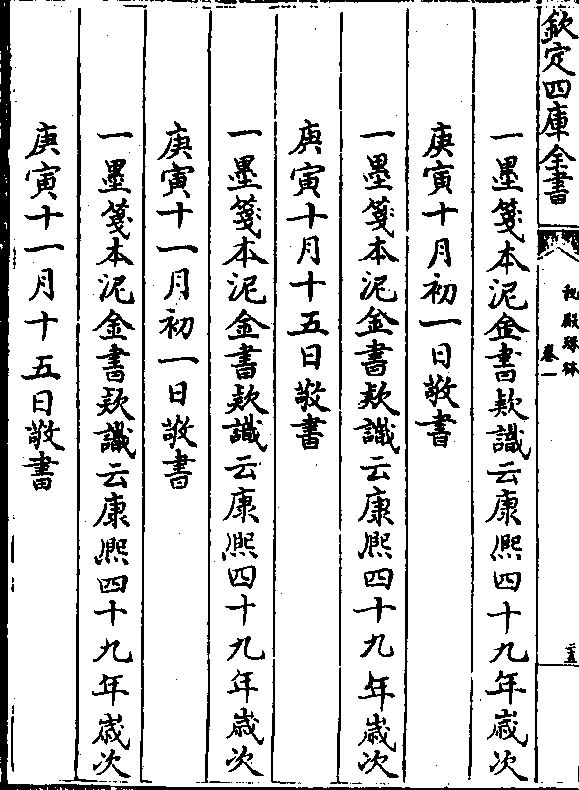 欽定四庫全書
秘殿珠林
卷一
一墨箋本泥金書欵識云康熙四十九年歲次
庚寅十月初一日敬書
一墨箋本泥金書欵識云康熙四十九年歲次
庚寅十月十五日敬書
一墨箋本泥金書欵識云康熙四十九年歲次
庚寅十一月初一日敬書
一墨箋本泥金書欵識云康熙四十九年歲次
庚寅十一月十五日敬書